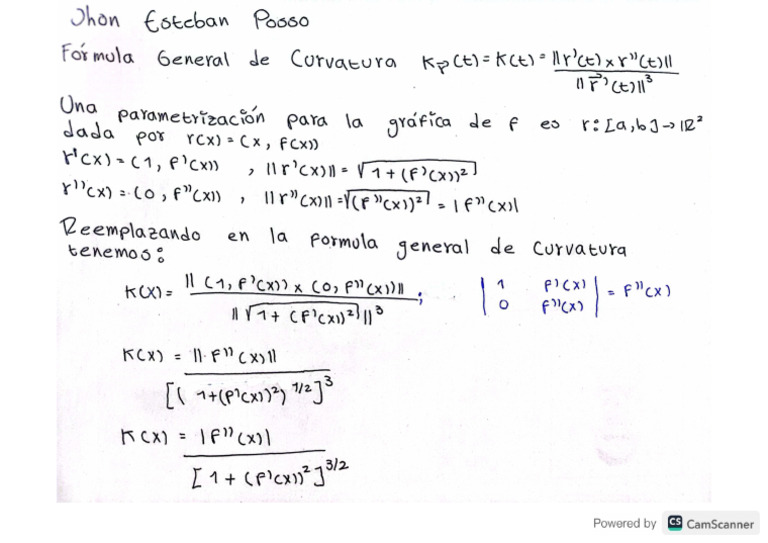 Jhon Esteban Posso
Fórmula General de Curvatura K_P(t) = K(t) = ||r'(t) x r''(t)|| / ||r⃗'(t)||³
Una parametrización para la gráfica de f es r: [a,b] → ℝ²
dada por r(x) = (x, f(x))
r'(x) = (1, f'(x)) , ||r'(x)|| = √(1+(f'(x))²)
r''(x) = (0, f''(x)) , ||r''(x)|| = √((f''(x))²) = |f''(x)|
Reemplazando en la formula general de curvatura
tenemos:
K(x) = ||(1, f'(x)) x (0, f''(x))|| / ||√(1+(f'(x))²)||³ ; |1 f'(x)| |0 f''(x)| = f''(x)
K(x) = ||f''(x)|| / [(1+(f'(x))²)^1/2]³
K(x) = |f''(x)| / [1+(f'(x))²]^3/2
Powered by CS CamScanner